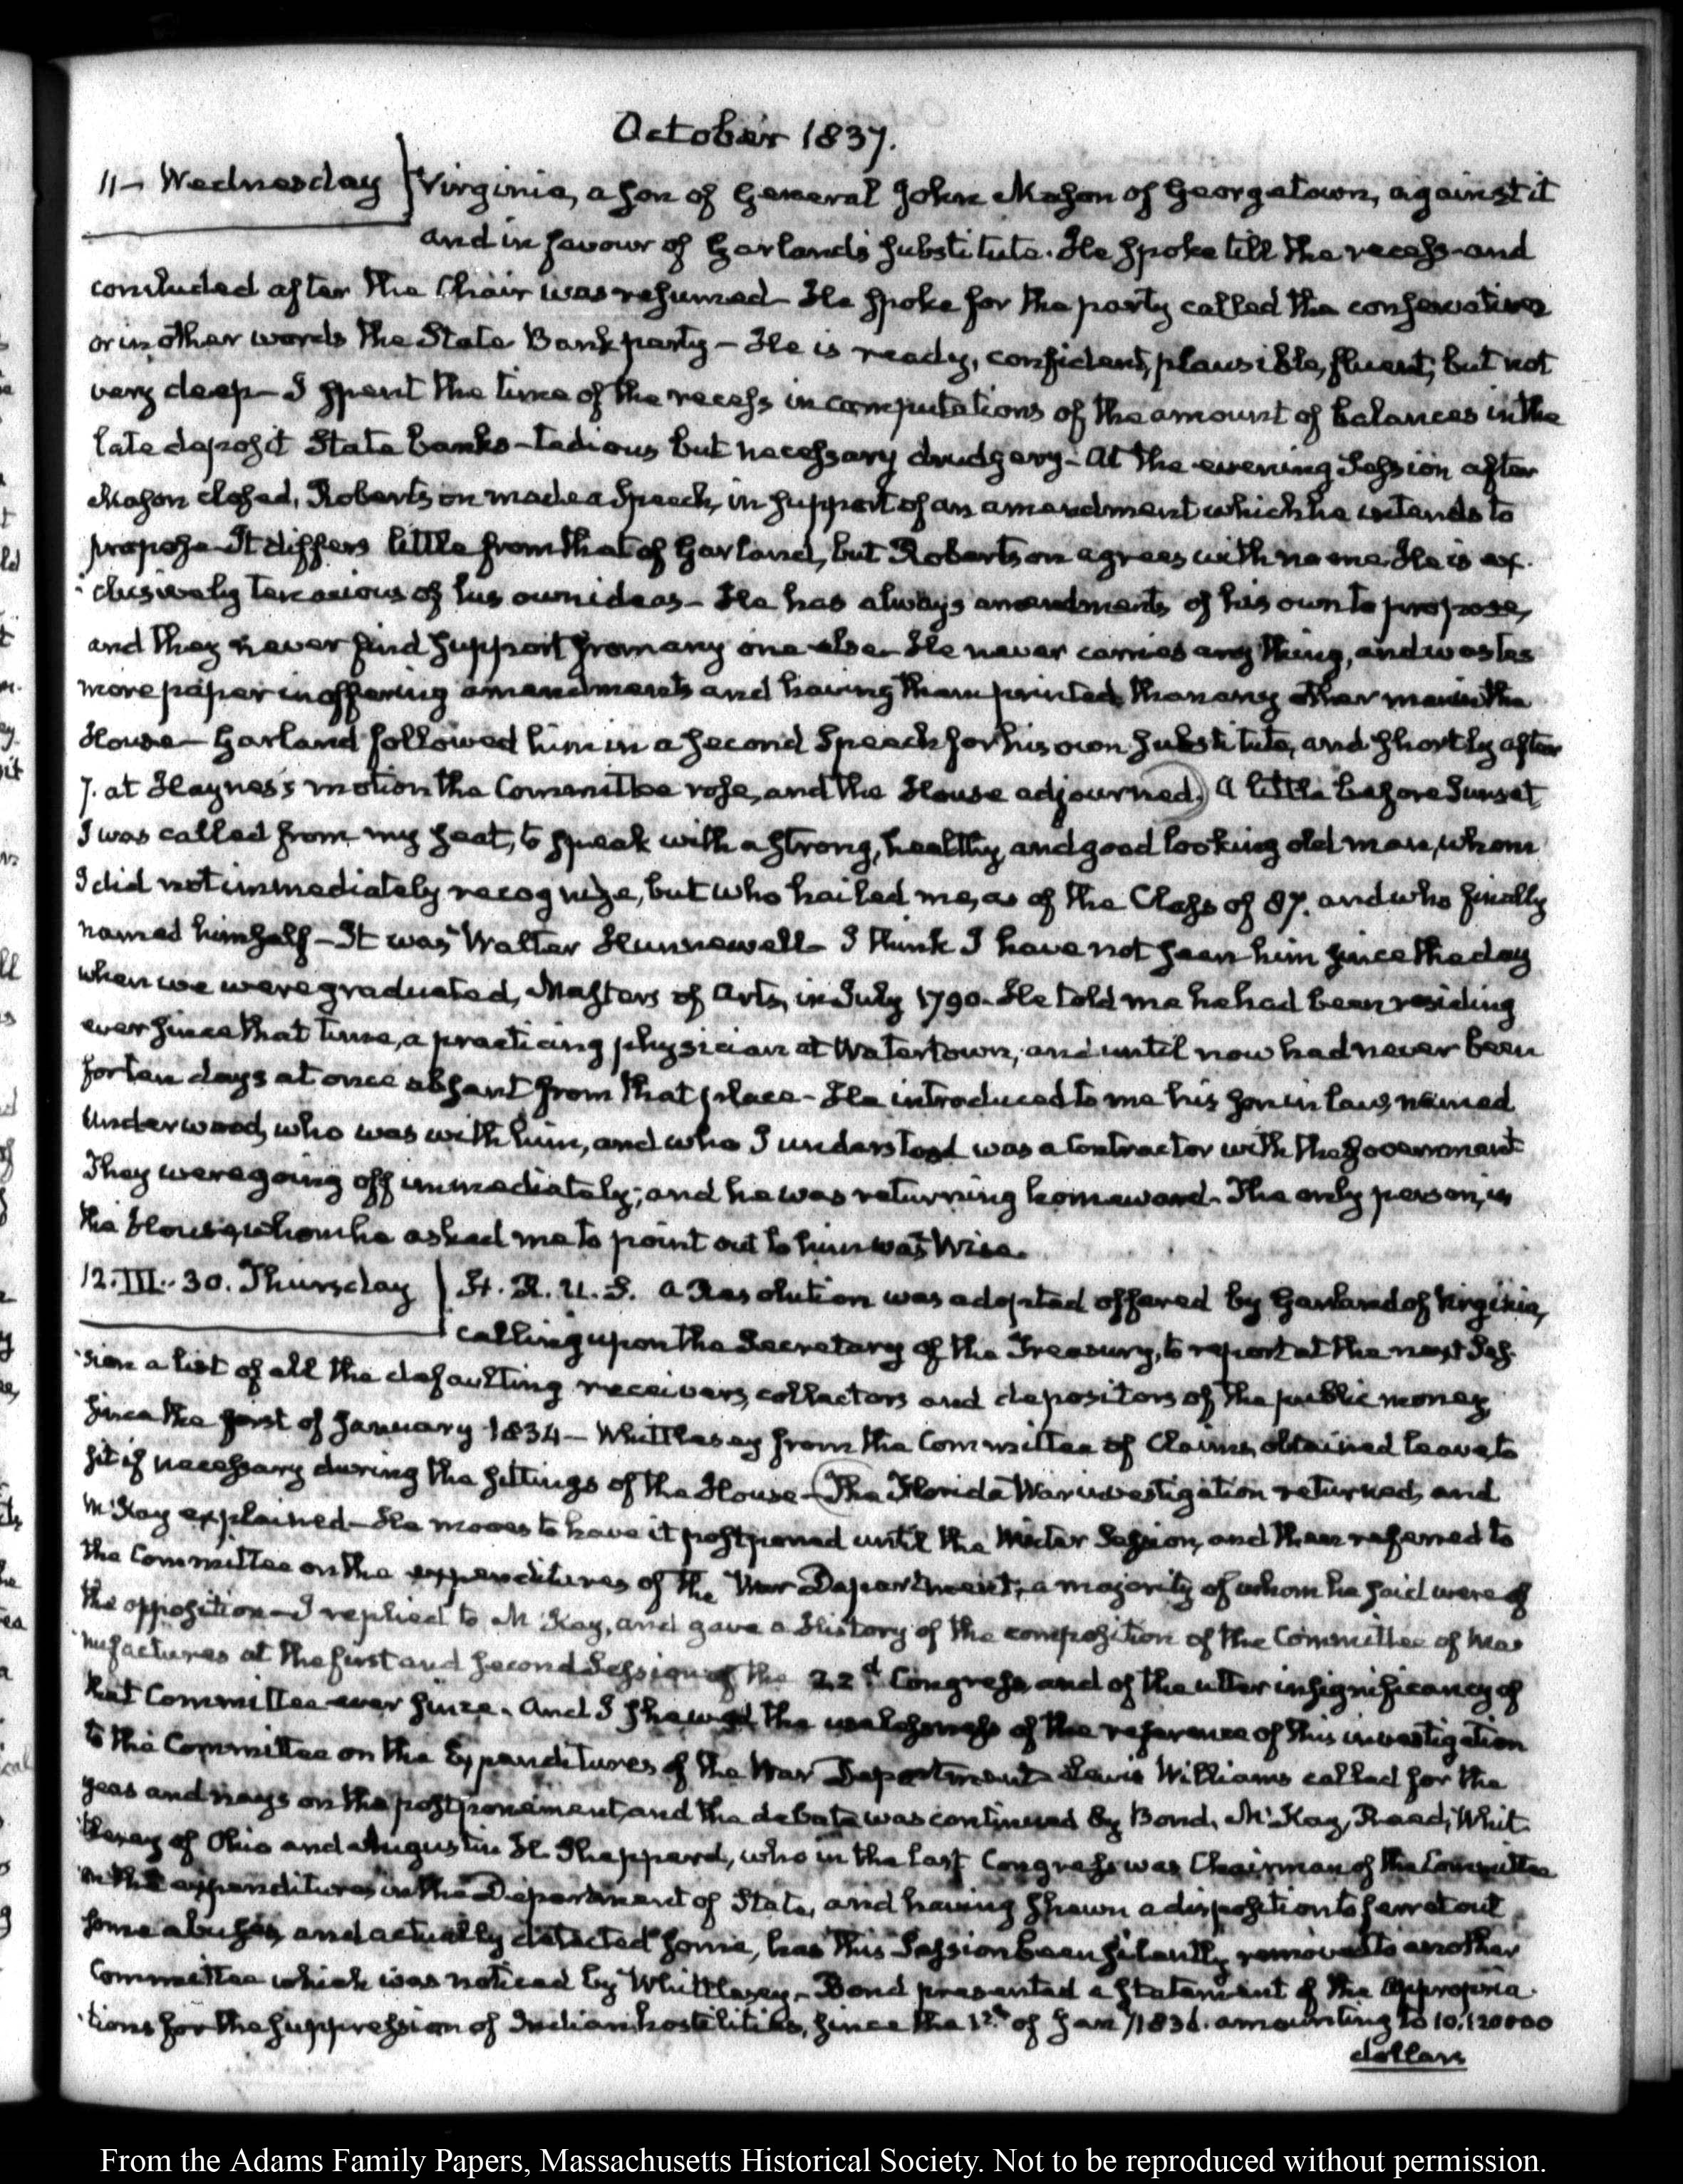 October 1837.
11– Wednesday
Virginia, a son of General John Mason of Georgetown, against it
and in favour of Garland's substitute. He spoke till the recess and
concluded after the Chair was resumed– He spoke for the party called the conservatives
or in other words the State Bank party– He is ready, confident, plausible, fluent, but not
very deep– I spent the time of the recess in computations of the amount of balances in the
late deposit State banks– tedious but necessary drudgery– At the evening Session after
Mason closed, Robertson made a Speech, in support of an amendment which he intends to
propose– It differs little from that of Garland, but Robertson agrees with no one. He is ex-
-clusively tenacious of his own ideas– He has always amendments of his own to propose,
and they never find support from any one else– He never carries any thing, and wastes
more paper in offering amendments and having them printed than any other man in the
House– Garland followed him in a second Speech for his own substitute, and shortly after
7. at Haynes's motion the Committee rose, and the House adjourned. A little before Sunset
I was called from my seat, to speak with a strong, healthy, and good looking old man, whom
I did not immediately recognize, but who hailed me, as of the Class of 87. and who finally
named himself– It was Walter Hunnewell– I think I have not seen him since the day
when we were graduated, Masters of Arts, in July 1790. He told me he had been residing
ever since that time, a practicing physician at Watertown, and until now had never been
for ten days at once absent from that place– He introduced to me his son in law, named
Underwood, who was with him, and who I understood was a Contractor with the Government
They were going off immediately; and he was returning homeward. The only person, in
the House, whom he asked me to point out to him was Wise.
12. III.. 30. Thursday
H. R. U. S. A Resolution was adopted offered by Garland of Virginia,
calling upon the Secretary of the Treasury, to report at the next Ses-
-sion a list of all the defaulting receivers, collectors and depositors of the public money
since the first of January 1834– Whittlesey from the Committee of Claims, obtained leave to
sit if necessary during the sittings of the House– The Florida War investigation returned, and
McKay explained– He moves to have it postponed until the Winter Session, and then referred to
the Committee on the expenditures of the War Department, a majority of whom he said were of
the opposition– I replied to McKay, and gave a History of the composition of the Committee of Ma-
-nufactures at the first and second Session of the 22d Congress, and of the utter insignificancy of
that Committee ever since. And I shewed the uselessness of the reference of this investigation
to the Committee on the Expenditures of the War Department– Lewis Williams called for the
yeas and nays on the postponement, and the debate was continued by Bond, McKay, Reed, Whit-
-tlesey of Ohio and Augustin H. Shepperd, who in the last Congress was Chairman of the Committee
on the expenditures in the Department of State, and having shown a disposition to ferret out
some abuses, and actually detected some, has this Session been silently removed to another
Committee which was noticed by Whittlesey– Bond presented a statement of the Appropria-
-tions for the suppression of Indian hostilities, since the 1st of Jany 1836. amounting to 10,120000
dollars
From the Adams Family Papers, Massachusetts Historical Society. Not to be reproduced without permission.